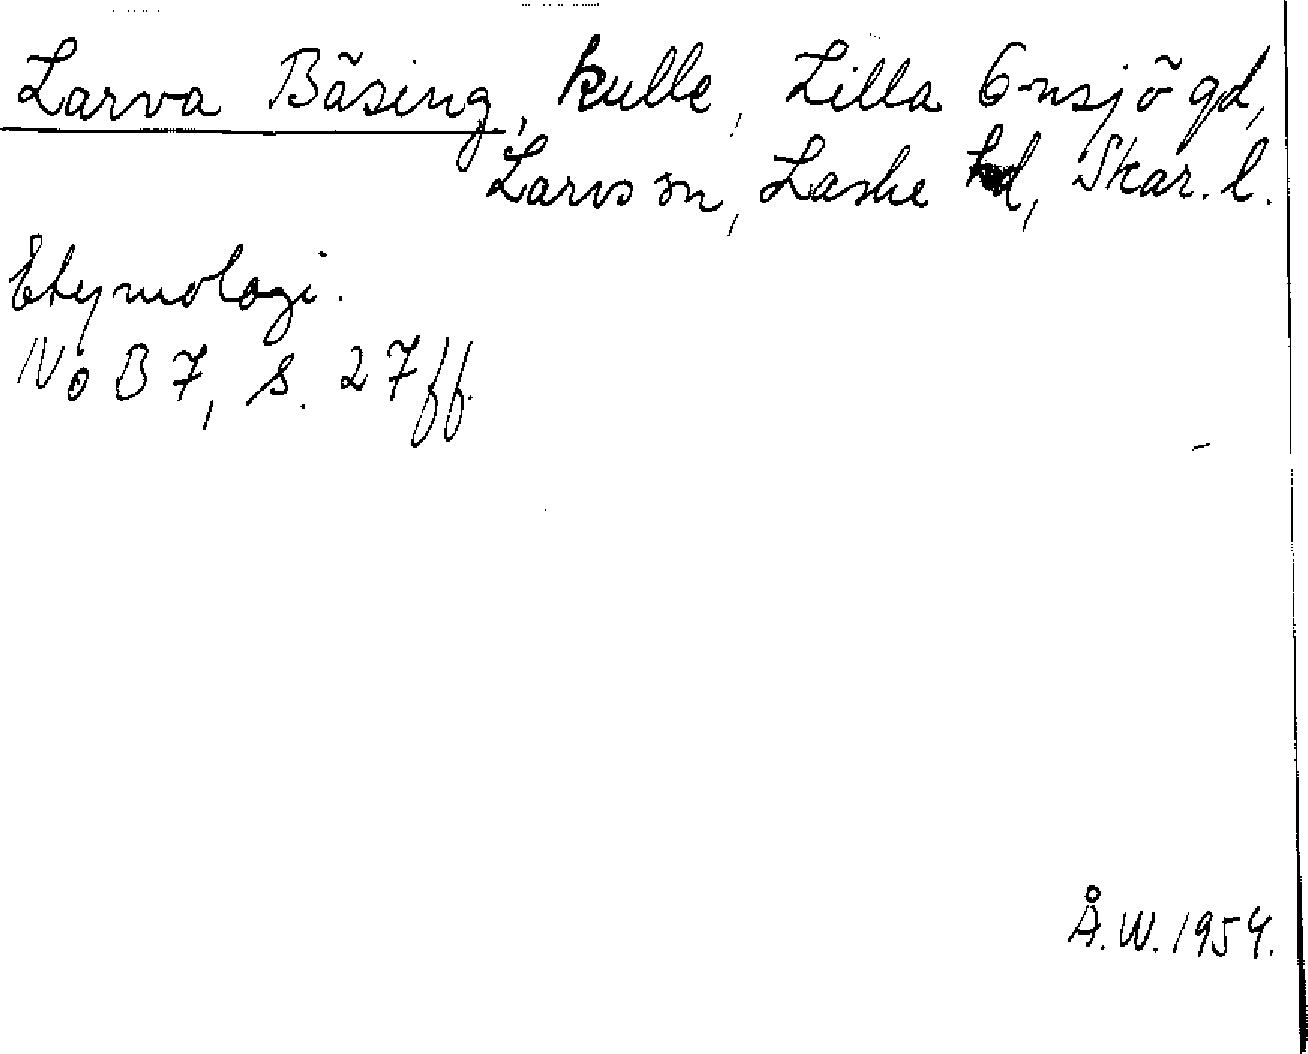 Larva Bäsing, kulle, Lilla Ensjö gd,
Larvs sn, Laske hd, Skar. l.
Etymologi.
NoB 7, s. 27 ff.
Å.W. 1954.